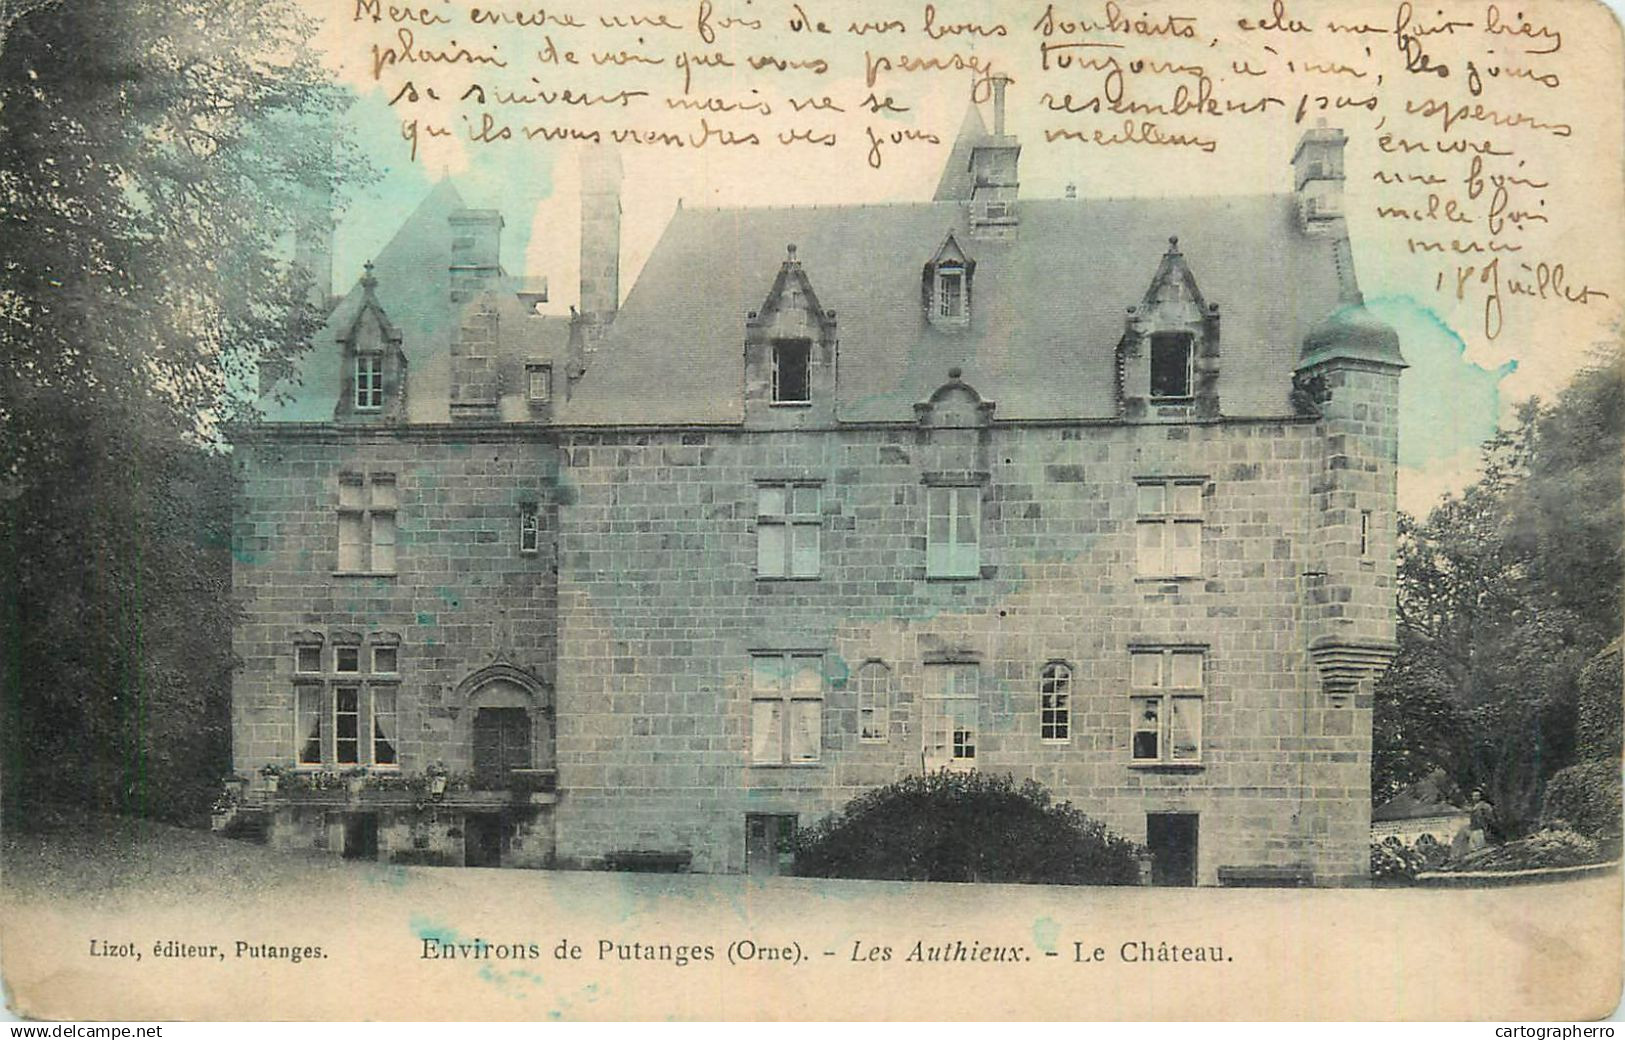 Merci encore une fois de vos bons souhaits, cela me fait bien
plaisir de voir que vous pensez toujours à moi, les jours
se suivent mais ne se ressemblent pas, esperons
qu'ils nous viendras des jours meilleurs encore
une fois
mille fois
merci
18 Juillet
Lizot, éditeur, Putanges. Environs de Putanges (Orne). - Les Authieux. - Le Château.
www.delcampe.net cartographerro